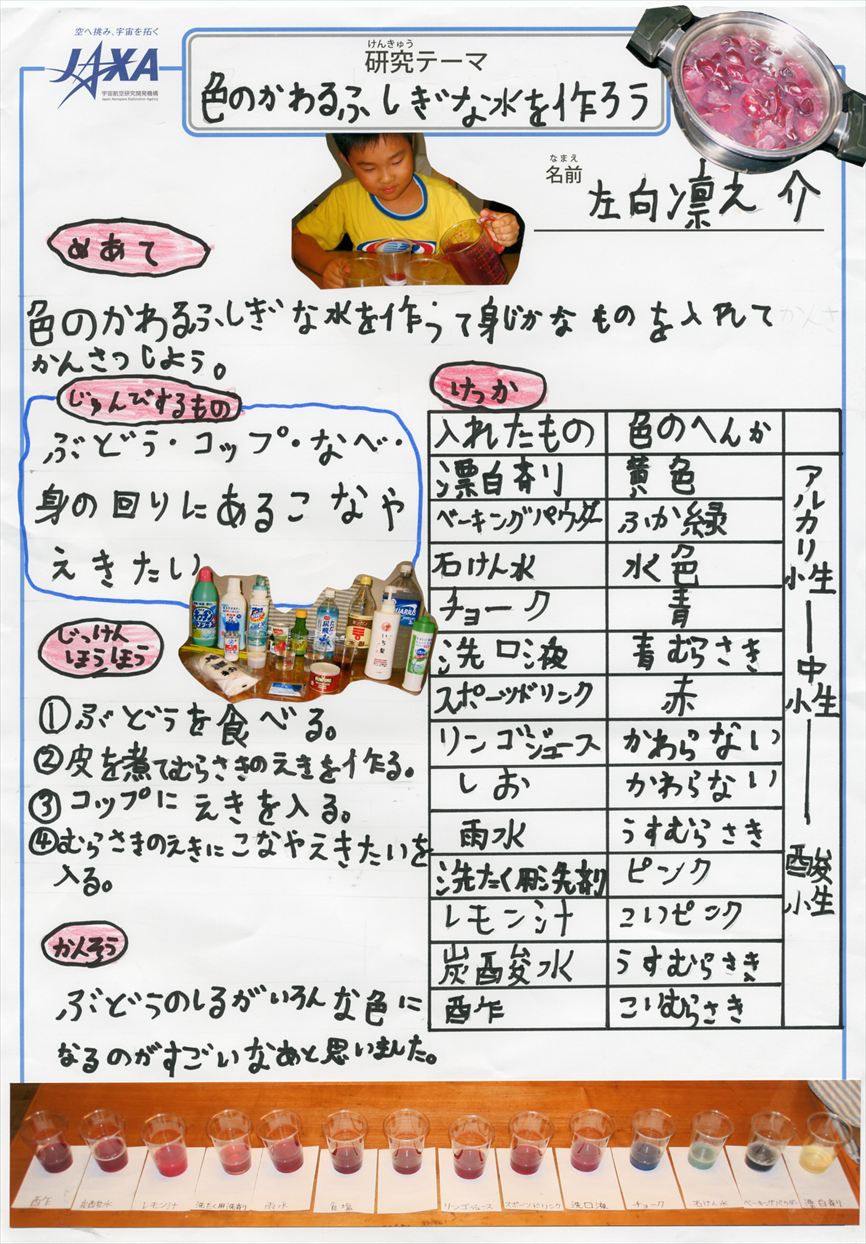 空へ挑み、宇宙を拓く
JAXA
宇宙航空研究開発機構
Japan Aerospace Exploration Agency
けんきゅう
研究テーマ
色のかわるふしぎな水を作ろう
なまえ
名前
左向凛之介
めあて
色のかわるふしぎな水を作って身じかなものを入れて
かんさつしよう。
じゅんびするもの
ぶどう・コップ・なべ・
身の回りにあるこなや
えきたい
じっけん
ほうほう
①ぶどうを食べる。
②皮を煮てむらさきのえきを作る。
③コップにえきを入る。
④むらさきのえきにこなやえきたいを
入る。
かんそう
ぶどうのしるがいろんな色に
なるのがすごいなあと思いました。
けっか
入れたもの 色のへんか
漂白剤 黄色
ベーキングパウダー ふか緑
石けん水 水色
チョーク 青
洗口液 青むらさき
スポーツドリンク 赤
リンゴジュース かわらない
しお かわらない
雨水 うすむらさき
洗たく用洗剤 ピンク
レモン汁 こいピンク
炭酸水 うすむらさき
酢 こいむらさき
アルカリ性
中性
酸性
AQUARIUS
酢 炭酸水 レモン汁 洗たく用洗剤 雨水 食塩 リンゴジュース スポーツドリンク 洗口液 チョーク 石けん水 ベーキングパウダー 漂白剤